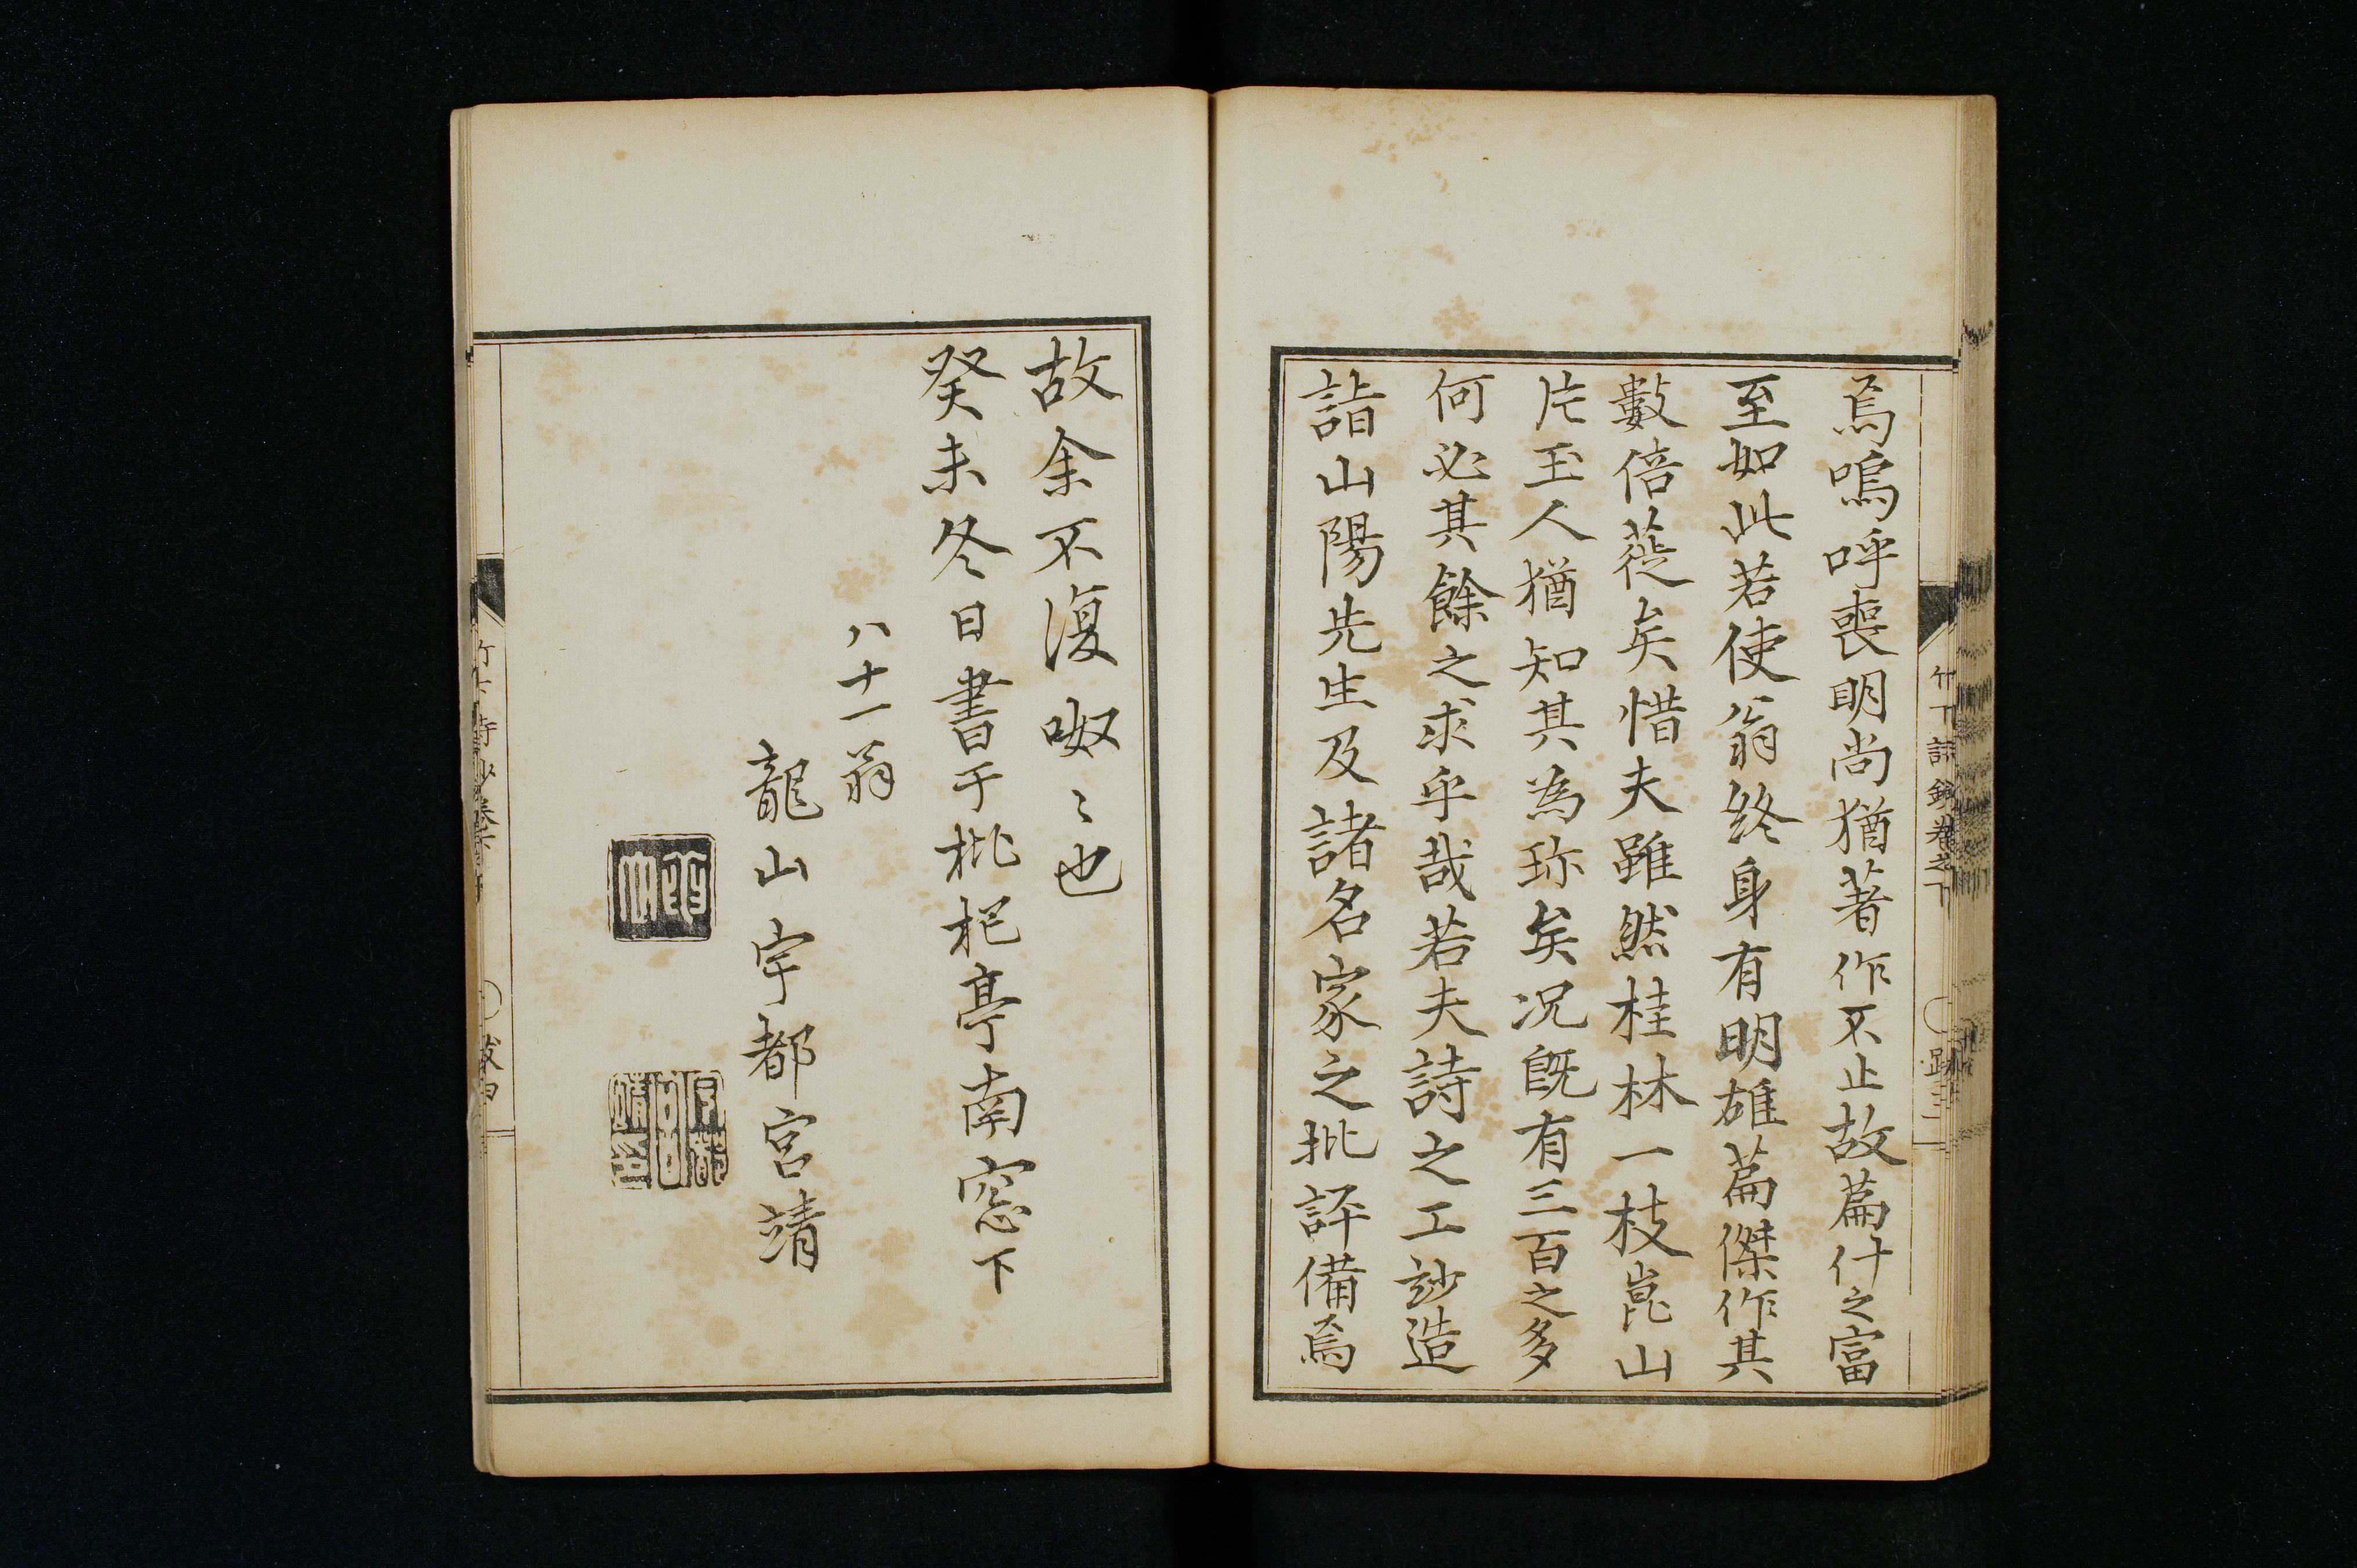 焉嗚呼喪明尚猶著作不止故篇什之富
至如此若使翁終身有明雄篇傑作其
數倍蓰矣惜夫雖然桂林一枝崑山
片玉人猶知其為珎矣况既有三百之多
何必其餘之求乎哉若夫詩之工玅造
詣山陽先生及諸名家之批評備焉
竹下詩鈔卷之下
跋三
故余不復呶〻也
癸未冬日書于枇杷亭南窓下
八十一翁
龍山宇都宮靖